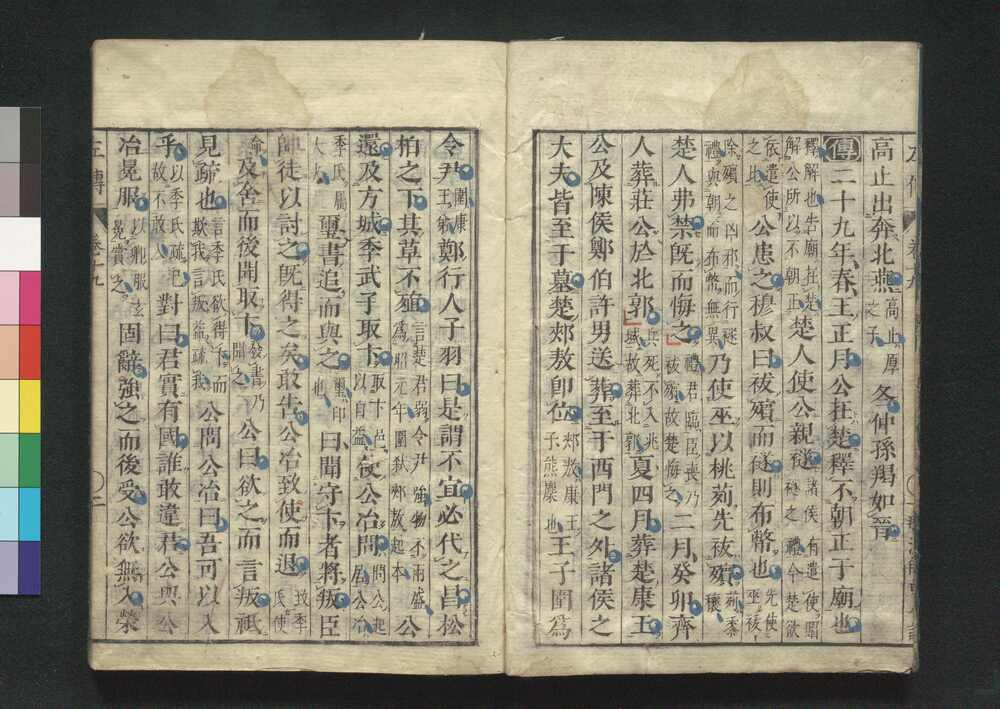 高止出奔北燕高止厚之子冬仲孫羯如晉
傳二十九年春王正月公在楚釋不朝正于廟也
釋解也告廟在楚解公所以不朝正楚人使公親襚諸侯有遣使賵襚之禮今楚欲
依遣使之比公患之穆叔曰祓殯而襚則布幣也先使巫祓
除殯之凶邪而行襚禮與朝而布幣無異乃使巫以桃茢先祓殯茢黍穰
楚人弗禁既而悔之禮君臨臣喪乃祓殯故楚悔之二月癸卯齊
人葬莊公於北郭兵死不入兆域故葬北郭夏四月葬楚康王
公及陳侯鄭伯許男送葬至于西門之外諸侯之
大夫皆至于墓楚郟敖卽位郟敖康王子熊麇也王子圍爲
令尹圍康王弟鄭行人子羽曰是謂不宜必代之昌松
柏之下其草不殖言楚君弱令尹強物不兩盛爲昭元年圍弑郟敖起本公
還及方城季武子取卞取卞邑以自益使公冶問問公起居公冶
季氏屬大夫璽書追而與之璽印也曰聞守卞者將叛臣
帥徒以討之既得之矣敢告公冶致使而退致季氏使
命及舍而後聞取卞發書乃聞之公曰欲之而言叛祇
見疏也言季氏欲得卞而欺我言叛益疏我公問公冶曰吾可以入
乎以季氏疏己故不敢入對曰君實有國誰敢違君公與公
冶冕服以卿服玄冕賞之固辭強之而後受公欲無入榮
左傳 卷十九 二